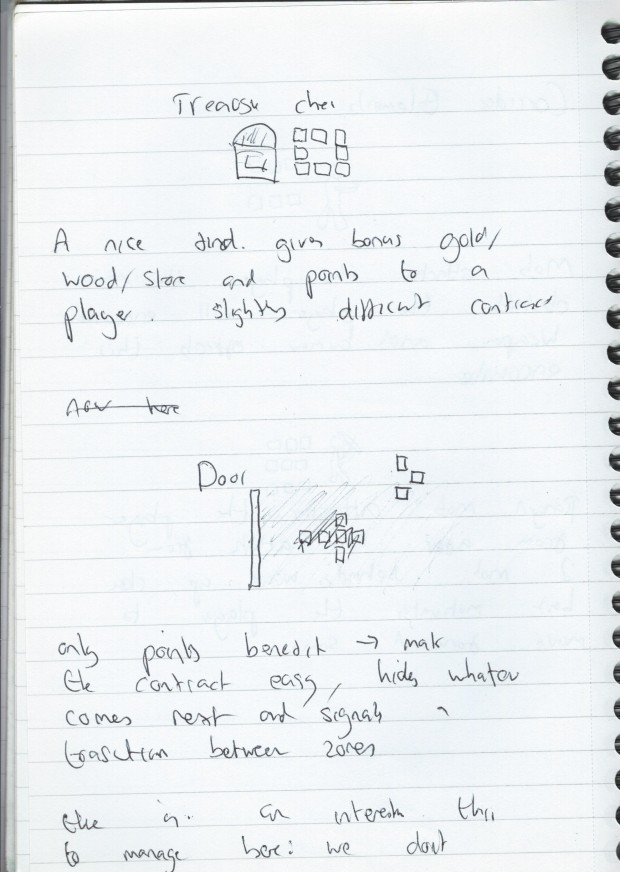 Treasure chest
A nice find. gives bonus gold/
wood/stone and points to a
player. slightly difficult contract
Door
only points benefit → make
the contract easy, hides whatever
comes next and signals a
transition between zones
there is an interesting thing
to manage here: we don't